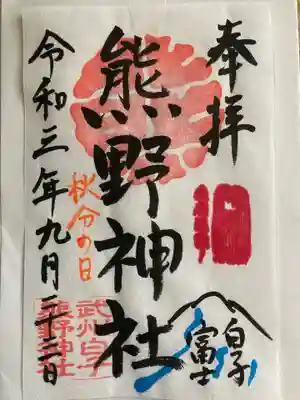 奉拝
熊野神社
令和三年九月二十三日
秋分の日
白子
富士
武州白子
熊野神社